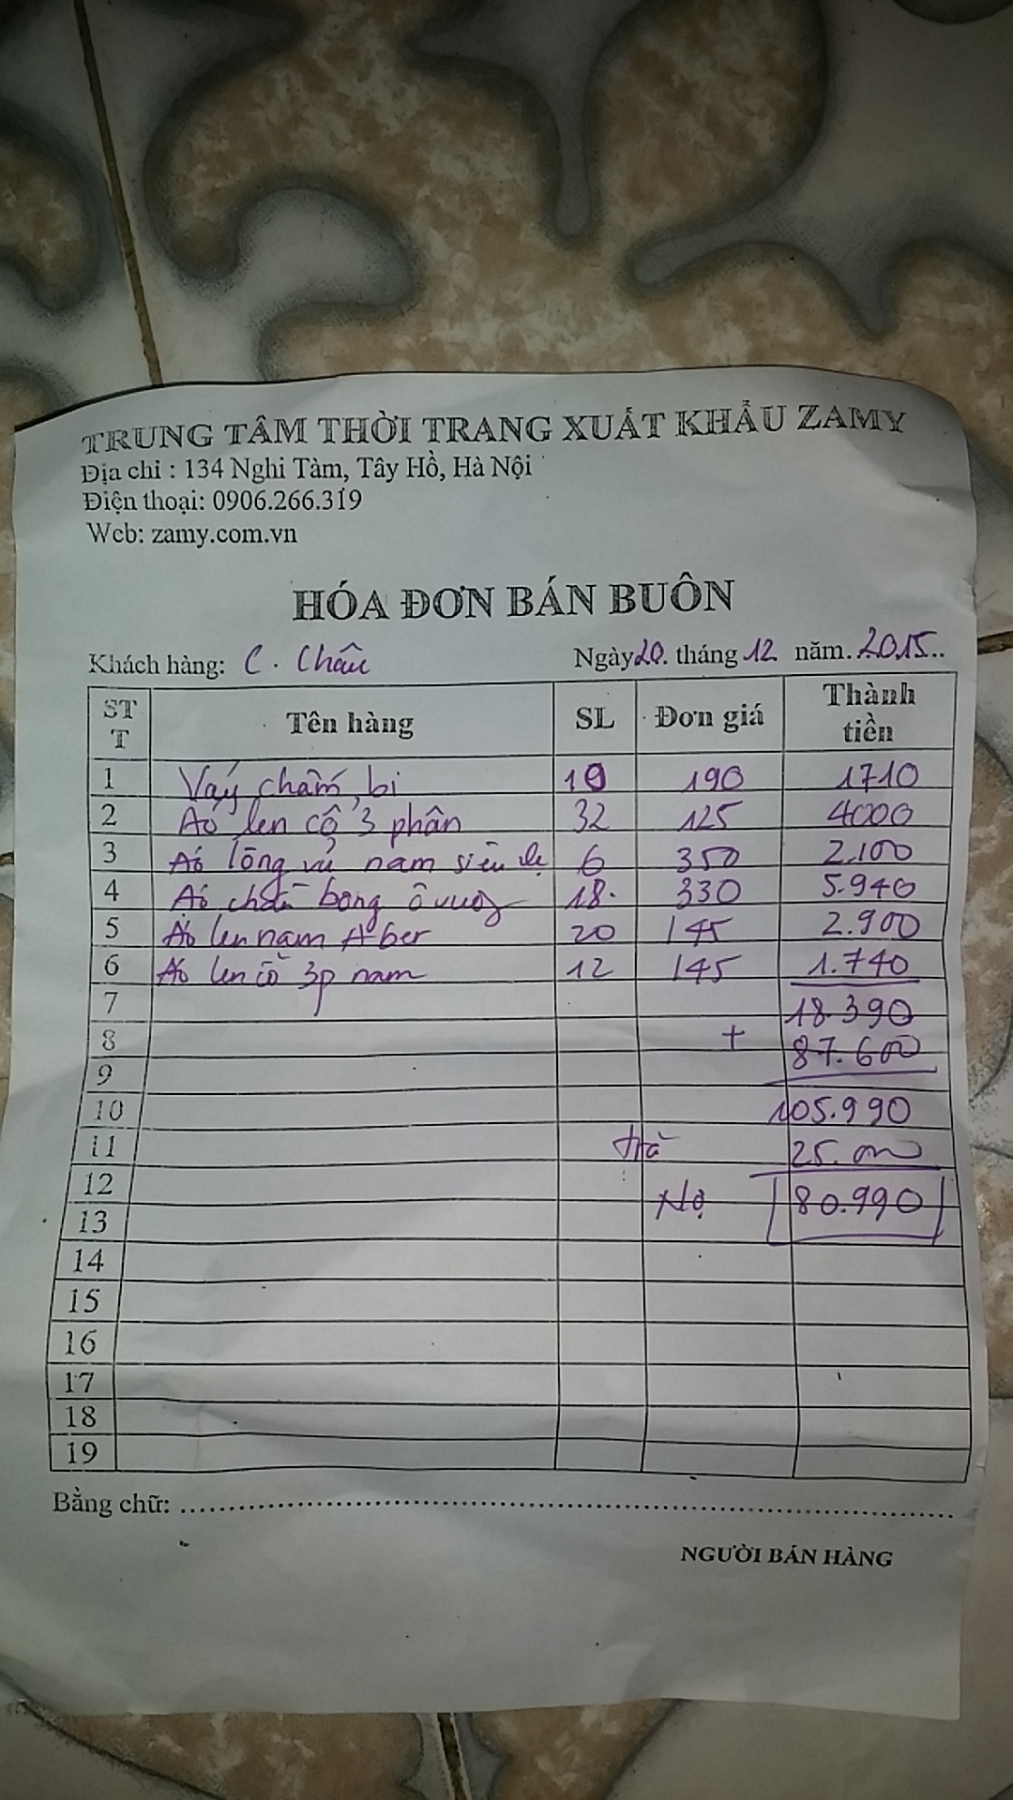 TRUNG TÂM THỜI TRANG XUẤT KHẨU ZAMY
Địa chỉ : 134 Nghi Tàm, Tây Hồ, Hà Nội
Điện thoại: 0906.266.319
Web: zamy.com.vn
HÓA ĐƠN BÁN BUÔN
Khách hàng: C. Châu Ngày 20. tháng 12 năm. 2015..
STT Tên hàng SL Đơn giá Thành tiền
1 Váy chấm bi 190 1710
2 Áo len cổ 3 phân 32 125 4000
3 Áo lông vũ nam siêu 6 350 2.100
4 Áo chần bông ô vuog 18. 330 5.940
5 Áo len nam Aber 20 145 2.900
6 Áo len cổ 3p nam 12 145 1.740
7 18.390
8 + 87.600
9
10 105.990
11 trả 25.000
12 Nợ 80.990
13
14
15
16
17
18
19
Bằng chữ: ........................................................................
NGƯỜI BÁN HÀNG